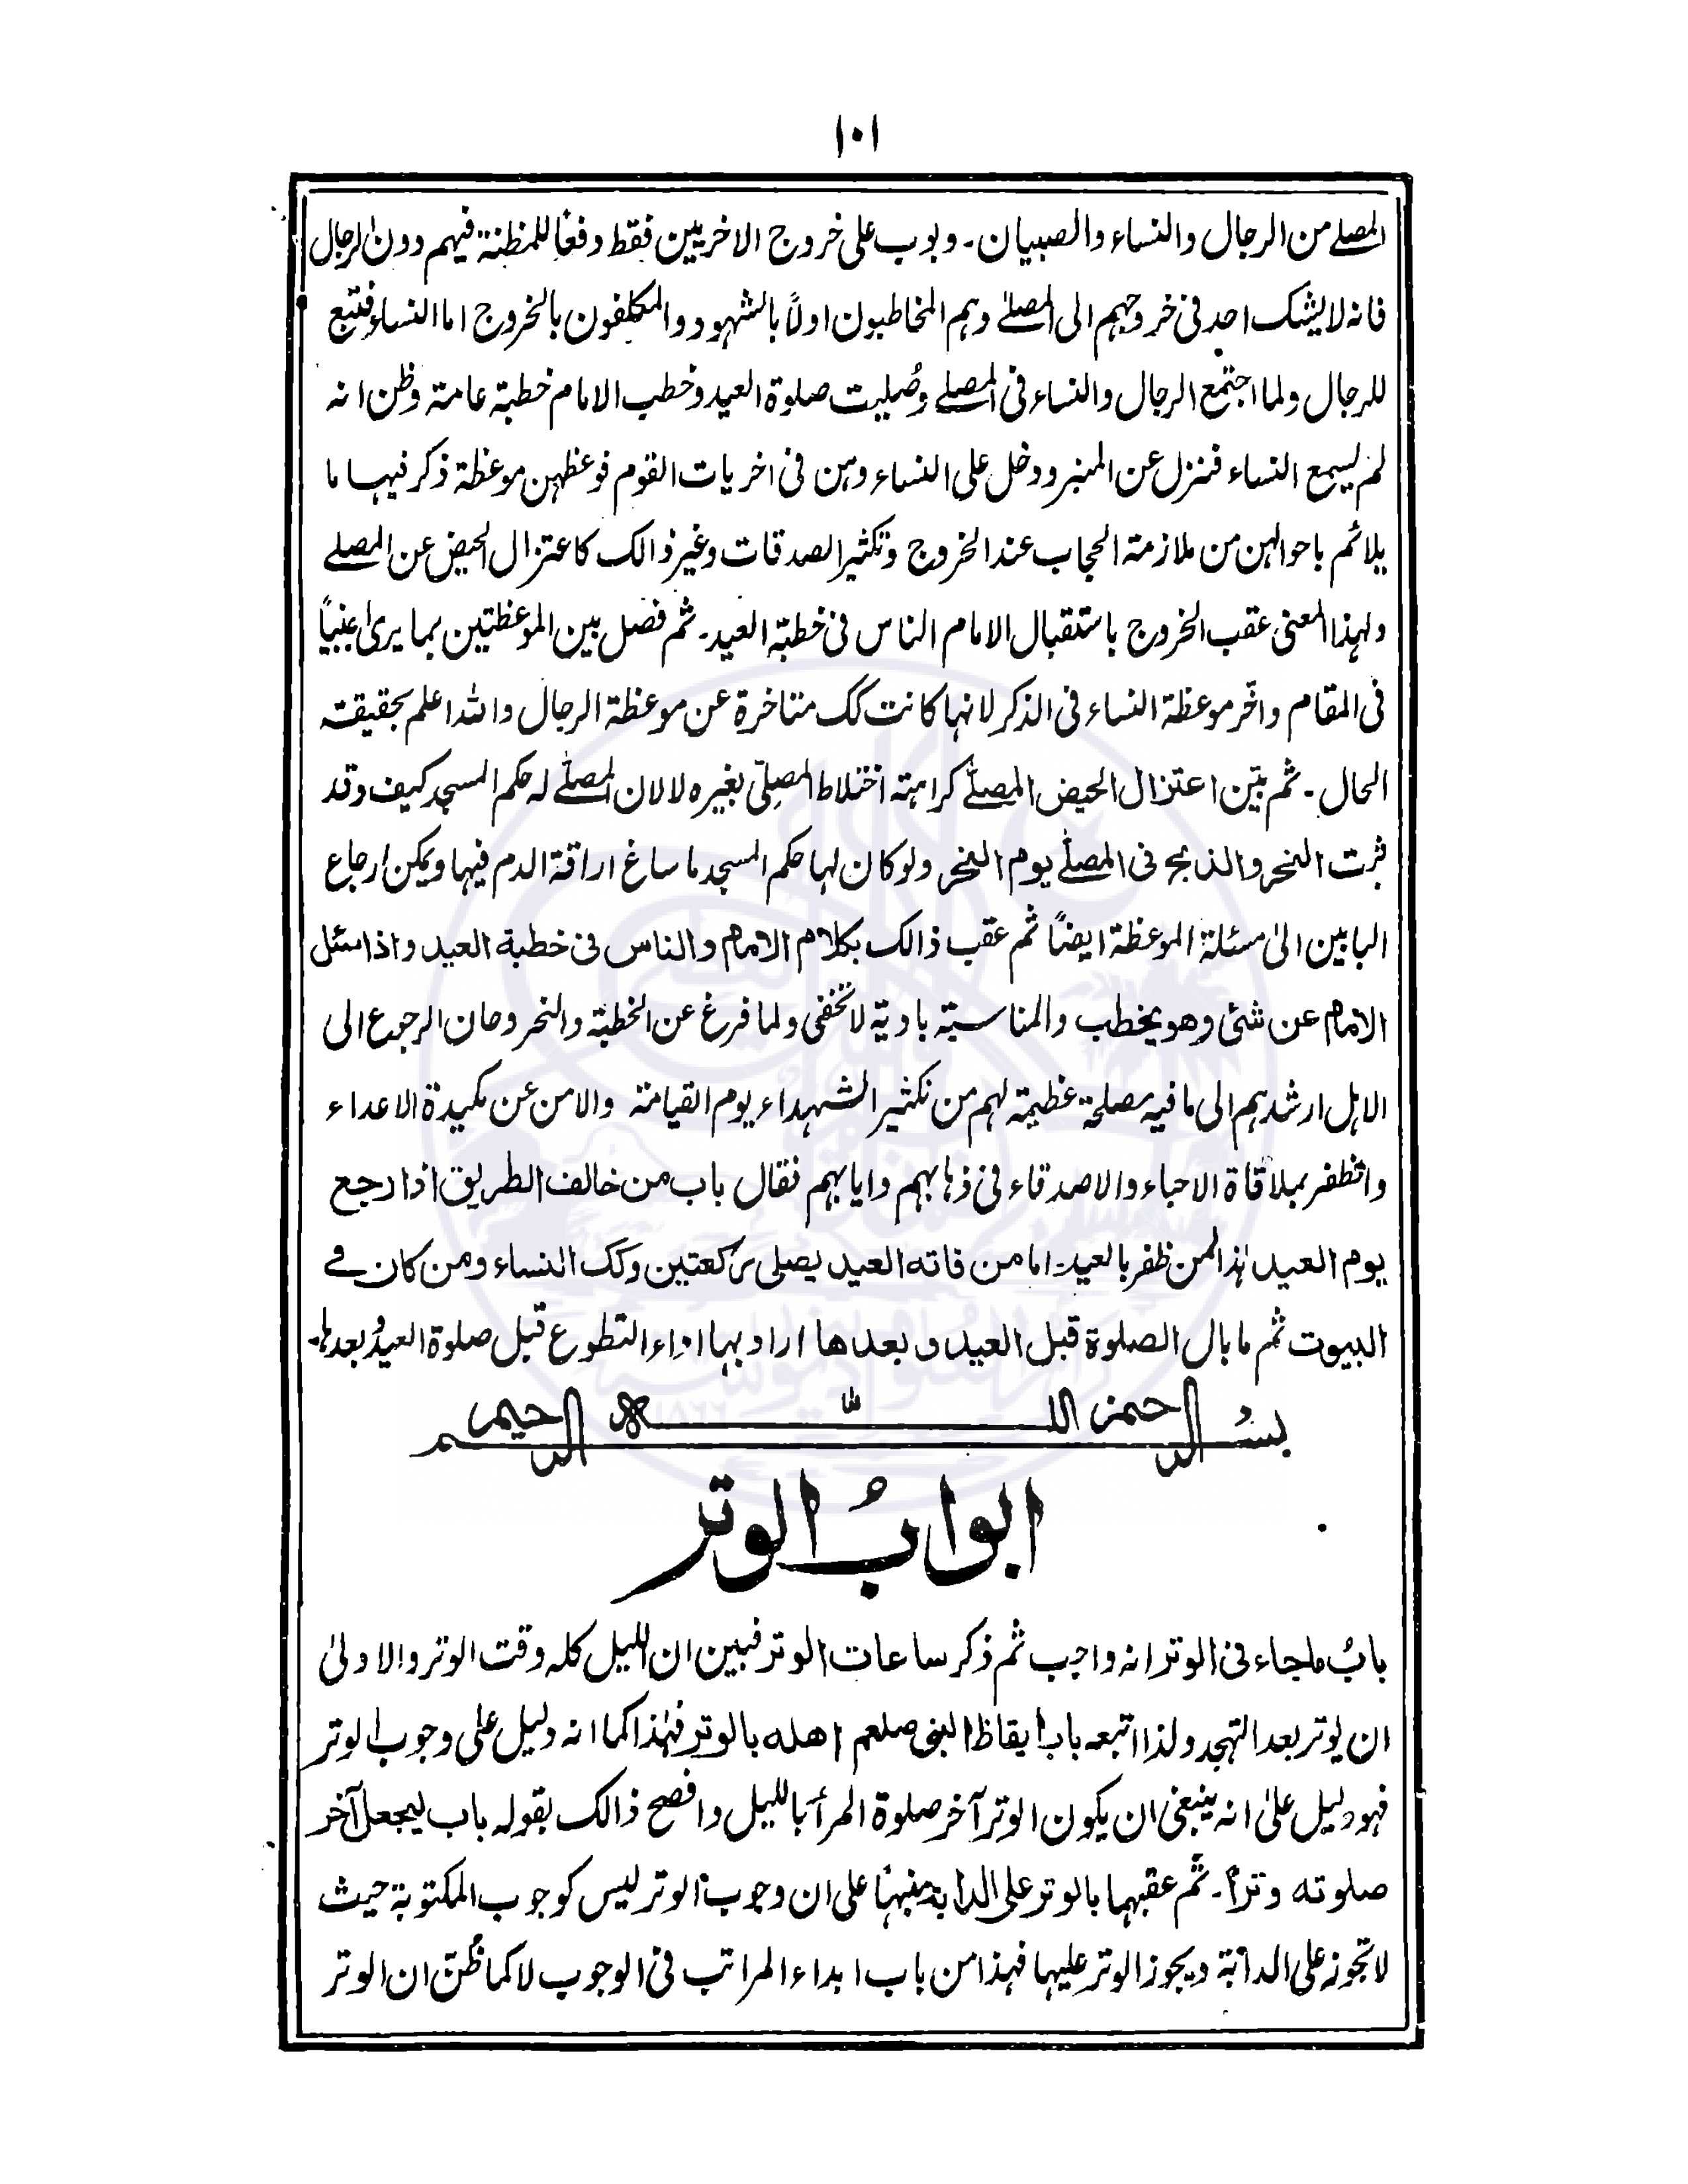 ١٠١
المصلے من الرجال والنساء والصبیان۔ وبوب علی خروج الاخریین فقط دفعًا للمظنة فیهم دون الرجال
فانه لایشک احد فی خروجهم الی المصلےٰ وهم المخاطبون اولاً بالشهود والمکلفون بالخروج اما النساء فتبع
للرجال ولما اجتمع الرجال والنساء فی المصلے وصُلیت صلوة العید وخطب الامام خطبة عامة وظن انه
لم یسمع النساء فنزل عن المنبر ودخل علی النساء وهن فی اخریات القوم فوعظهن موعظة ذکر فیها ما
یلائم باحوالهن من ملازمة الحجاب عند الخروج وتکثیر الصدقات وغیر ذالک کاعتزال الحیض عن المصلے
ولهذا المعنی عقب الخروج باستقبال الامام الناس فی خطبة العید۔ ثم فصل بین الموعظتین بما یریٰ اجنبیاً
فی المقام واخّر موعظة النساء فی الذکر لانها کانت کک متاخرة عن موعظة الرجال والله اعلم بحقیقة
الحال۔ ثم بیّن اعتزال الحیض المصلےٰ کراهة اختلاط المصلّی بغیره لا لان المصلےٰ له حکم المسجد کیف وقد
ثبت النحر والذبح فی المصلےٰ یوم النحر ولو کان لها حکم المسجد ما ساغ اراقة الدم فیها ویمکن ارجاع
البابین الیٰ مسئلة الموعظة ایضاً ثم عقب ذالک بکلام الامام والناس فی خطبة العید واذا سئل
الامام عن شئ وهو یخطب والمناسبة بادیة لا تخفی ولما فرغ عن الخطبة والنحر وحان الرجوع الی
الاهل ارشدهم الی ما فیه مصلحة عظیمة لهم من تکثیر الشهداء یوم القیامة والامن عن مکیدة الاعداء
والظفر بملاقاة الاحباء والاصدقاء فی ذهابهم وایابهم فقال باب من خالف الطریق اذا رجع
یوم العید هٰذا لمن ظفر بالعید۔ اما من فاته العید یصلی رکعتین وکک النساء ومن کان فے
البیوت ثم ما بال الصلوة قبل العید و بعدها اراد بها اداء التطوع قبل صلوة العید وبعدها۔
بسم الله الرحمن الرحیم
ابوابُ الوتر
بابُ ماجاء فی الوتر انه واجب ثم ذکر ساعات الوتر فبین ان اللیل کله وقت الوتر والاولیٰ
ان یوتر بعد التهجد ولذا اتبعه باب ایقاظ النبی صلعم اهله بالوتر فهٰذا کما انه دلیل علی وجوب الوتر
فهو دلیل علیٰ انه ینبغی ان یکون الوتر آخر صلوة المرأ باللیل وافصح ذالک بقوله باب لیجعل آخر
صلوته وتراً۔ ثم عقبهما بالوتر علی الدابة منبهًا علی ان وجوب الوتر لیس کوجوب المکتوبة حیث
لا تجوز علی الدابّة ویجوز الوتر علیها فهذا من باب ابداء المراتب فی الوجوب لا کما ظُنّ ان الوتر